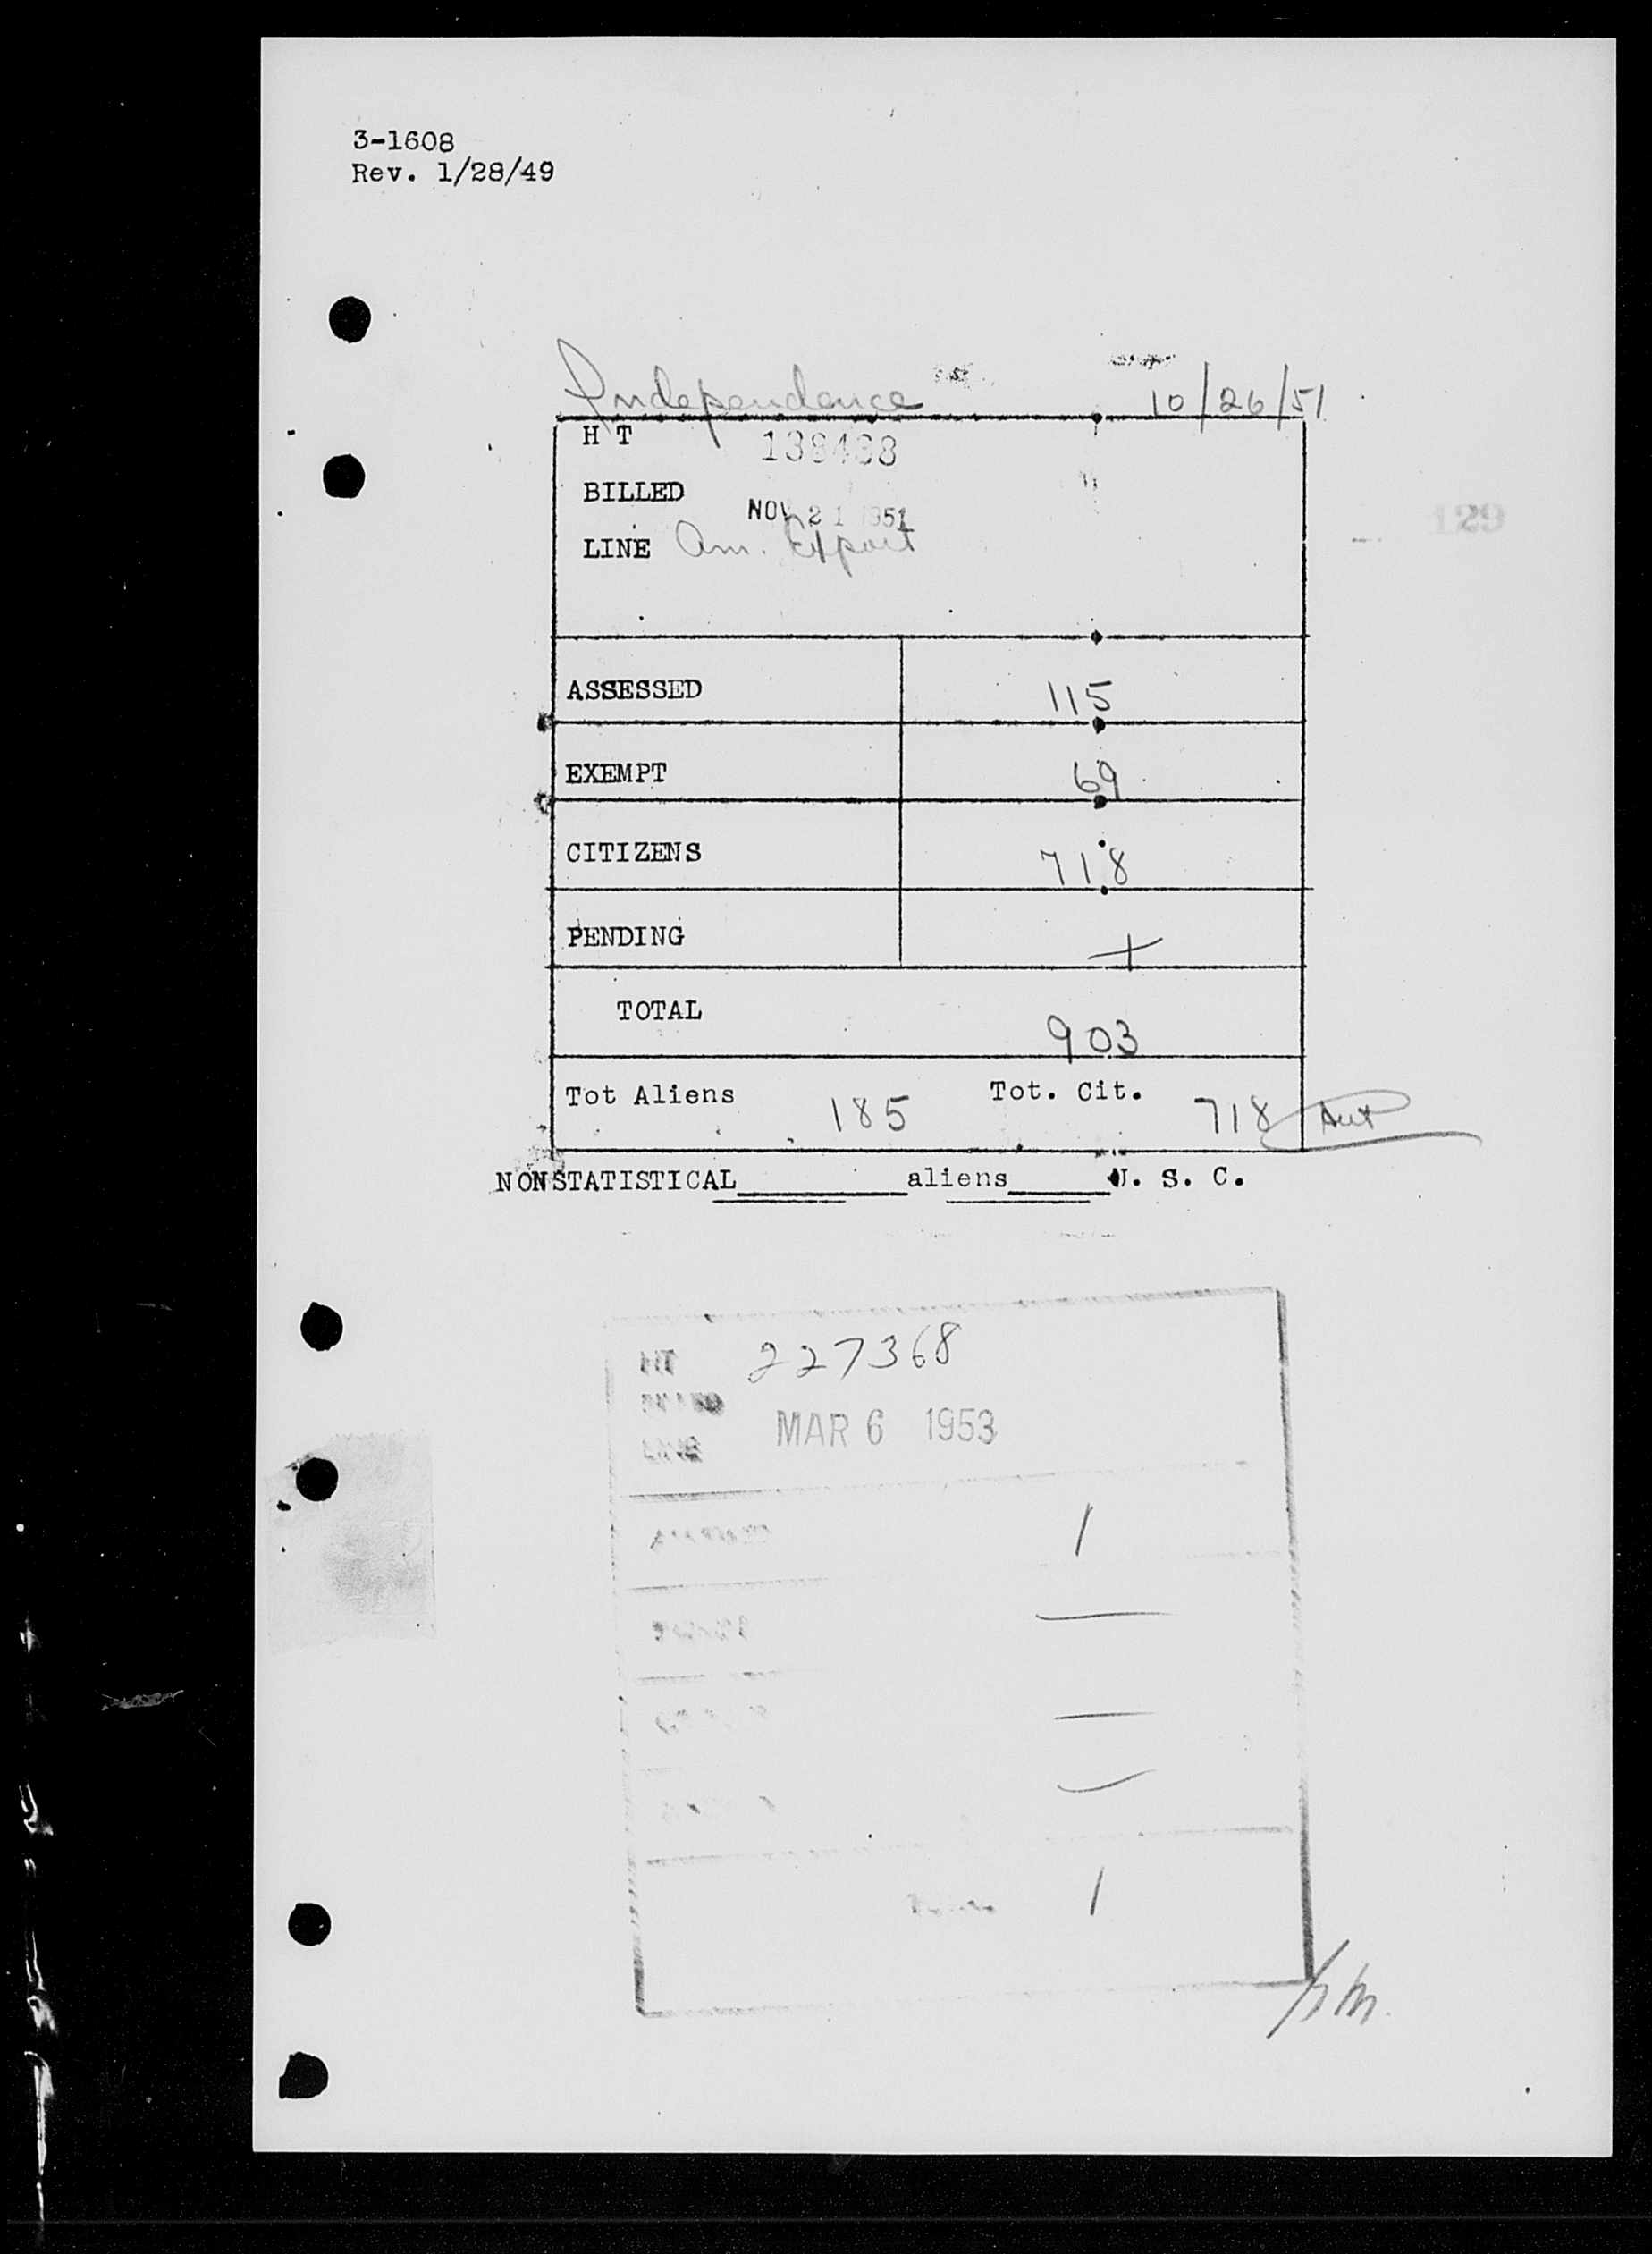 3-1608
Rev. 1/28/49
Independence 10/26/51
H T 138438
BILLED NOV 21 1951
129
LINE Am. Export
ASSESSED 115
EXEMPT 69
CITIZENS 718
PENDING +
TOTAL 903
Tot Aliens 185 Tot. Cit. 718
NONSTATISTICAL aliens U. S. C.
HT 227368
MAR 6 1953
LINE
1
—
—
—
1